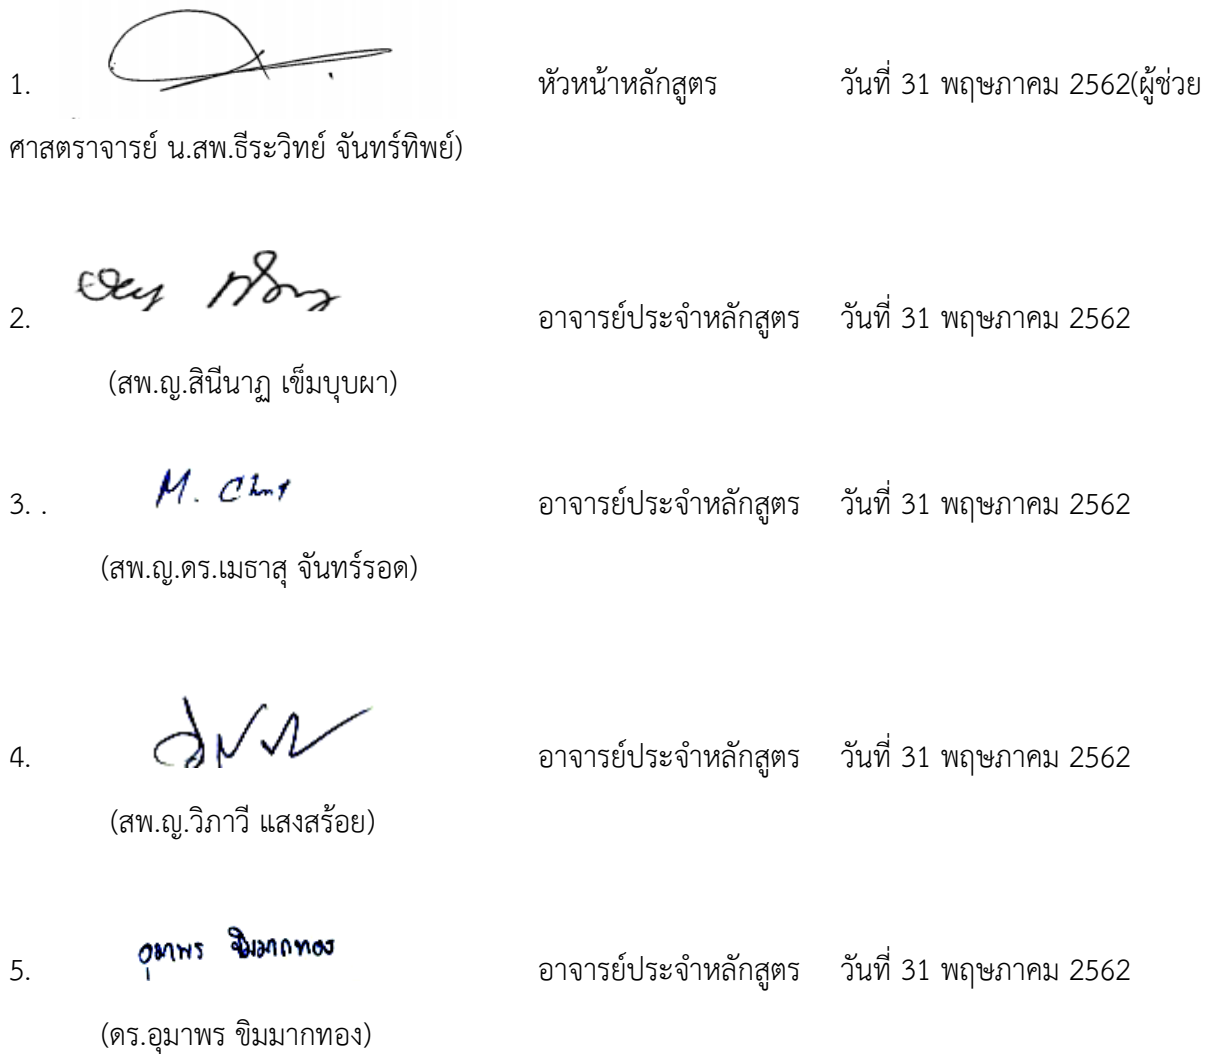 1. หัวหน้าหลักสูตร วันที่ 31 พฤษภาคม 2562(ผู้ช่วย
ศาสตราจารย์ น.สพ.ธีระวิทย์ จันทร์ทิพย์)
2. อาจารย์ประจำหลักสูตร วันที่ 31 พฤษภาคม 2562
(สพ.ญ.สินีนาฏ เข็มบุบผา)
3. . M. Chnt อาจารย์ประจำหลักสูตร วันที่ 31 พฤษภาคม 2562
(สพ.ญ.ดร.เมธาสุ จันทร์รอด)
4. อาจารย์ประจำหลักสูตร วันที่ 31 พฤษภาคม 2562
(สพ.ญ.วิภาวี แสงสร้อย)
5. อุมาพร ขิมมากทอง อาจารย์ประจำหลักสูตร วันที่ 31 พฤษภาคม 2562
(ดร.อุมาพร ขิมมากทอง)